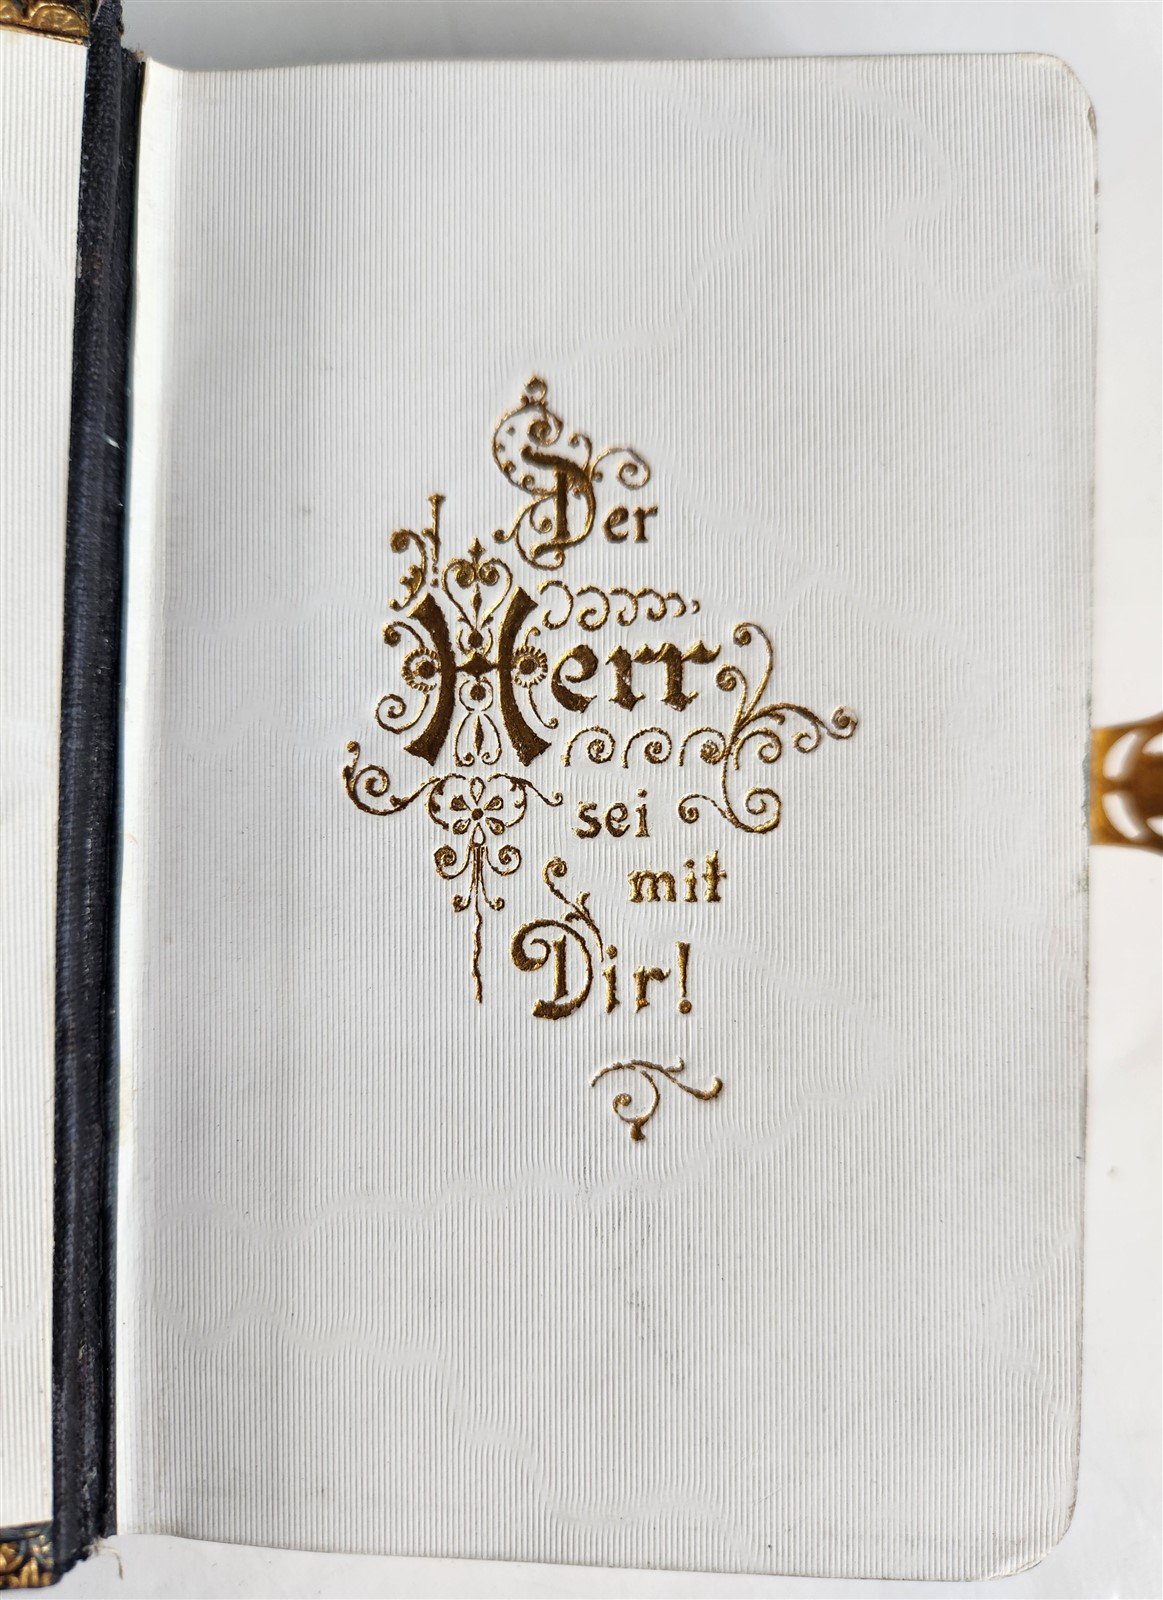 Der
Herr
sei
mit
Dir!